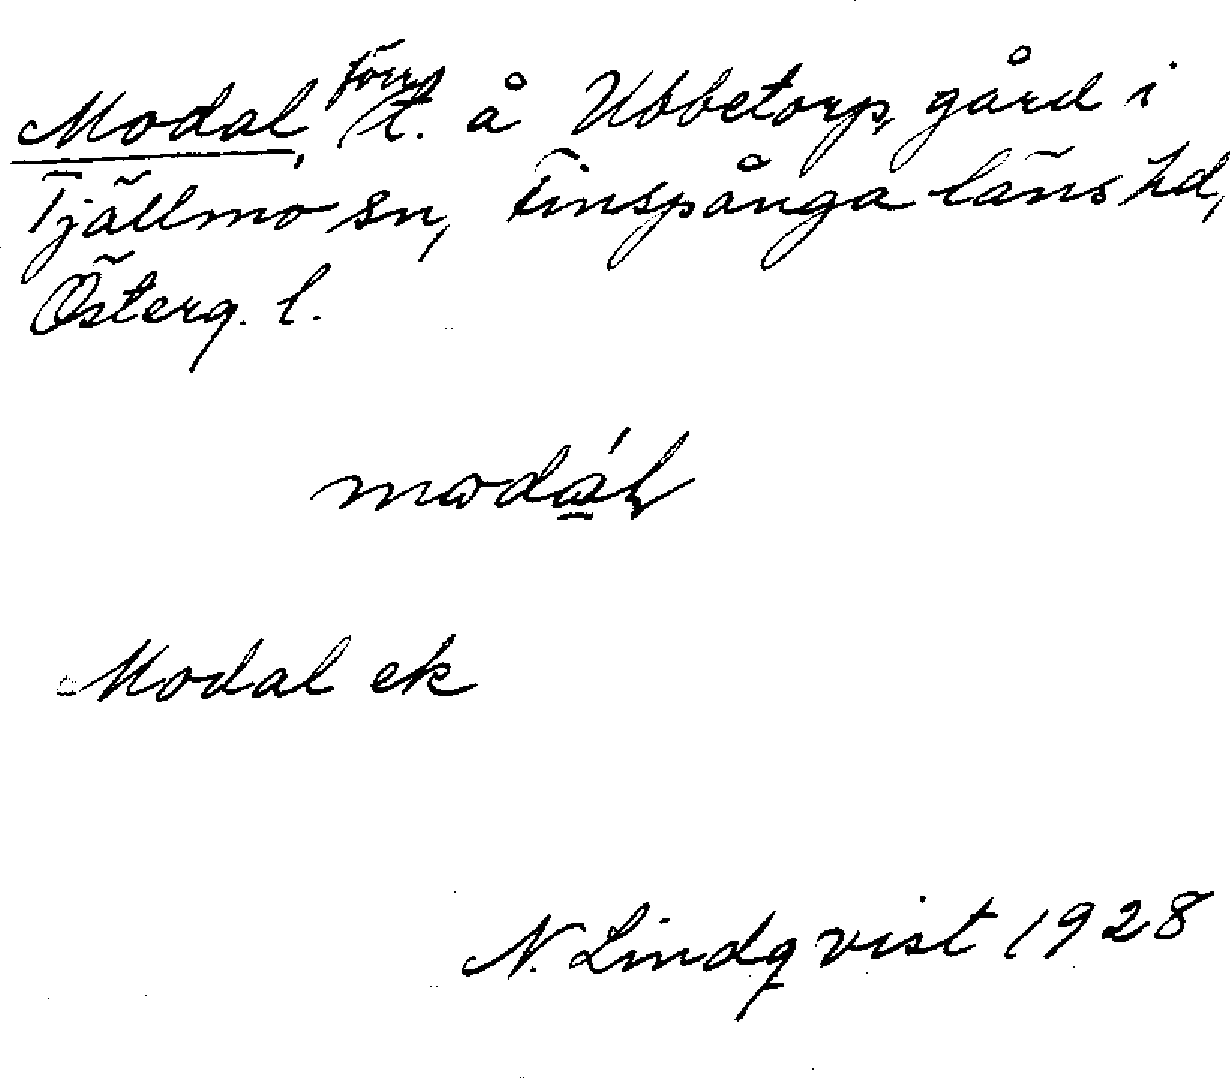 Modal, förr t. å Ubbetorp, gård i
Tjällmo sn, Finspånga läns hd,
Österg. l.
modál
Modal ek
N. Lindqvist 1928